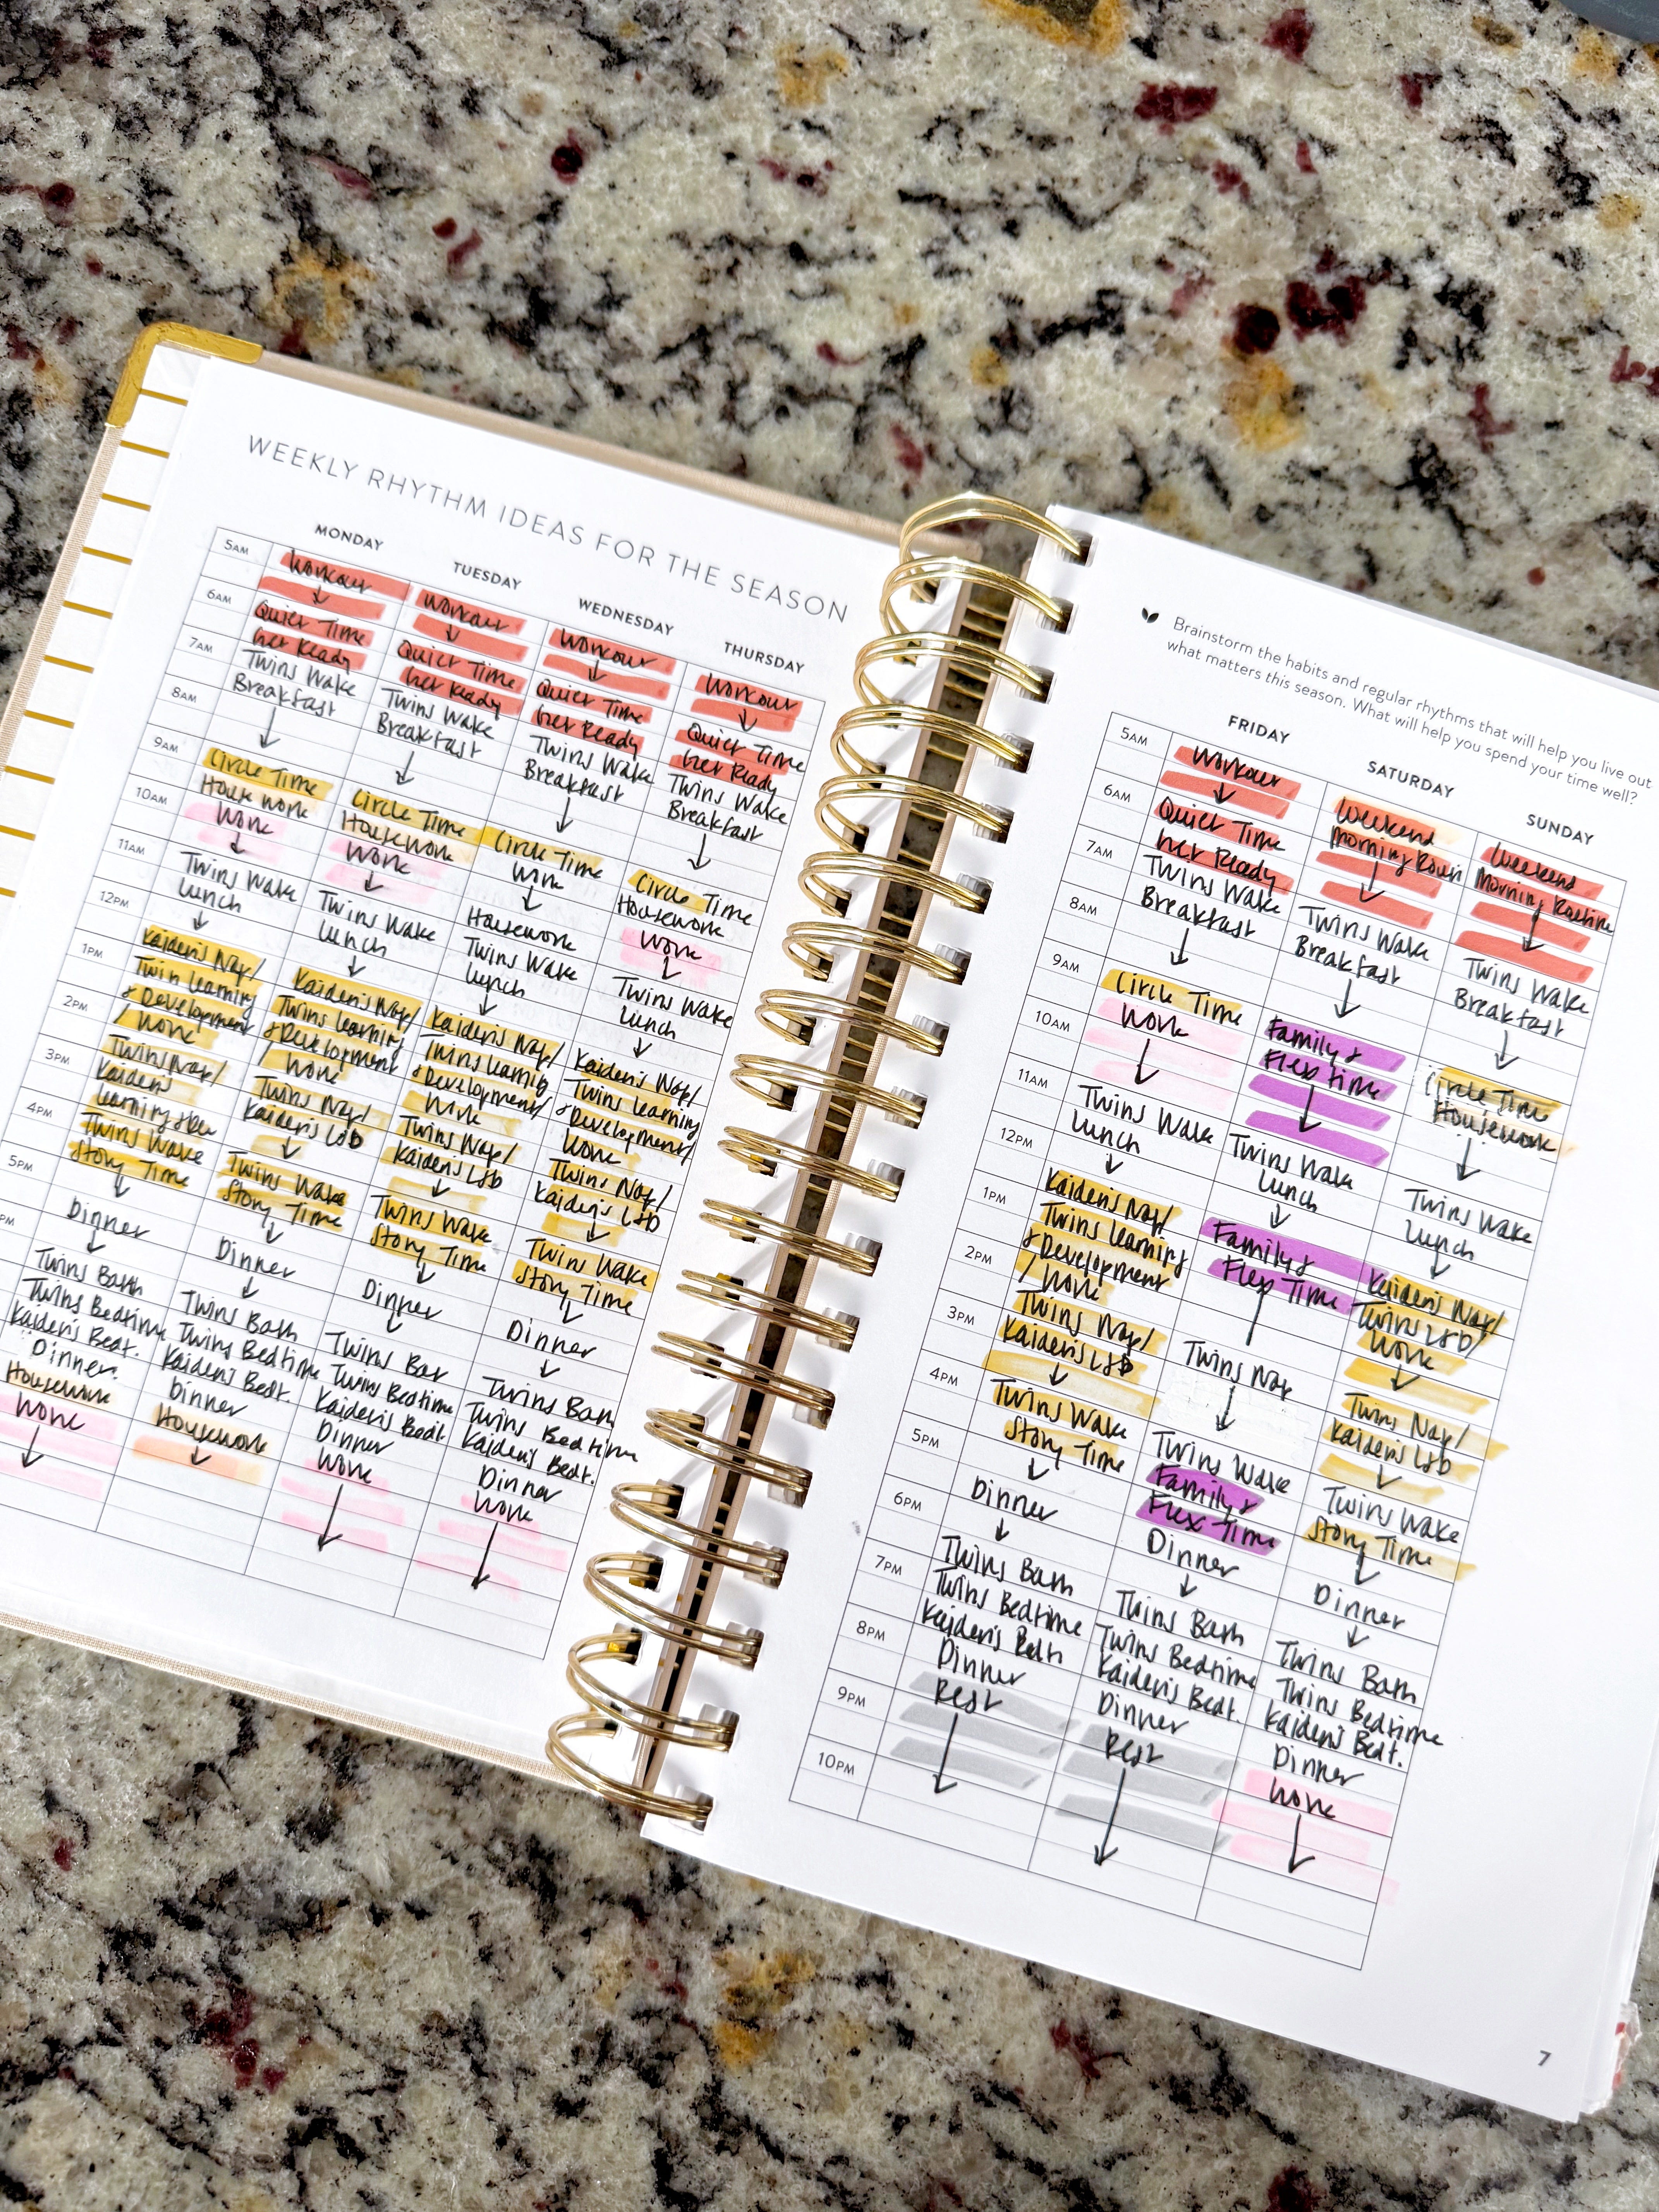 WEEKLY RHYTHM IDEAS FOR THE SEASON
MONDAY
5AM
Workout
6AM
Quiet Time
Get Ready
7AM
Twins Wake
Breakfast
8AM
9AM
Circle Time
Housework
10AM
Work
11AM
Twins Wake
Lunch
12PM
Kaiden's Nap/
1PM
Twin Learning
& Development
2PM
/ Work
Twins Nap/
3PM
Kaiden's
Learning & Dev
4PM
Twins Wake
Story Time
5PM
Dinner
PM
Twins Bath
Twins Bedtime
Kaiden's Bedt.
Dinner.
Housework
Work
TUESDAY
Workout
Quiet Time
Get Ready
Twins Wake
Breakfast
Circle Time
Housework
Work
Twins Wake
Lunch
Kaiden's Nap/
Twins Learning
& Development
/ Work
Twins Nap/
Kaiden's L&D
Twins Wake
Story Time
Dinner
Twins Bath
Twins Bedtime
Kaiden's Bedt.
Dinner
Housework
WEDNESDAY
Workout
Quiet Time
Get Ready
Twins Wake
Breakfast
Circle Time
Work
Housework
Twins Wake
Lunch
Kaiden's Nap/
Twins Learning
& Development/
Work
Twins Nap/
Kaiden's L&D
Twins Wake
Story Time
Dinner
Twins Bat
Twins Bedtime
Kaiden's Bedt.
Dinner
Work
THURSDAY
Workout
Quiet Time
Get Ready
Twins Wake
Breakfast
Circle Time
Housework
Work
Twins Wake
Lunch
Kaiden's Nap/
Twins Learning
& Development/
Work
Twins Nap/
Kaiden's L&D
Twin Wake
Story Time
Dinner
Twins Bath
Twins Bedtime
Kaiden's Bedt.
Dinner
Work
Brainstorm the habits and regular rhythms that will help you live out
what matters this season. What will help you spend your time well?
FRIDAY
5AM
Workout
6AM
Quiet Time
Get Ready
7AM
Twins Wake
Breakfast
8AM
9AM
Circle Time
Work
10AM
11AM
Twins Wake
Lunch
12PM
Kaiden's Nap/
1PM
Twins Learning
& Development
2PM
/ Work
Twins Nap/
3PM
Kaiden's L&D
4PM
Twins Wake
Story Time
5PM
Dinner
6PM
Twins Bath
7PM
Twins Bedtime
Kaiden's Bedt.
8PM
Dinner
Rest
9PM
10PM
SATURDAY
Weekend
Morning Routi
Twins Wake
Breakfast
Family &
Flex time
Twins Wake
Lunch
Family &
Flex Time
Twins Nap
Twins Wake
Family &
Flex Time
Dinner
Twins Bath
Twins Bedtime
Kaiden's Bedt.
Dinner
Rest
SUNDAY
Weekend
Morning Routine
Twins Wake
Breakfast
Circle Time
Housework
Twins Wake
Lunch
Kaiden's Nap/
Twins L&D/
Work
Twins Nap/
Kaiden's L&D
Twins Wake
Story Time
Dinner
Twins Bath
Twins Bedtime
Kaiden's Bedt.
Dinner
Work
7